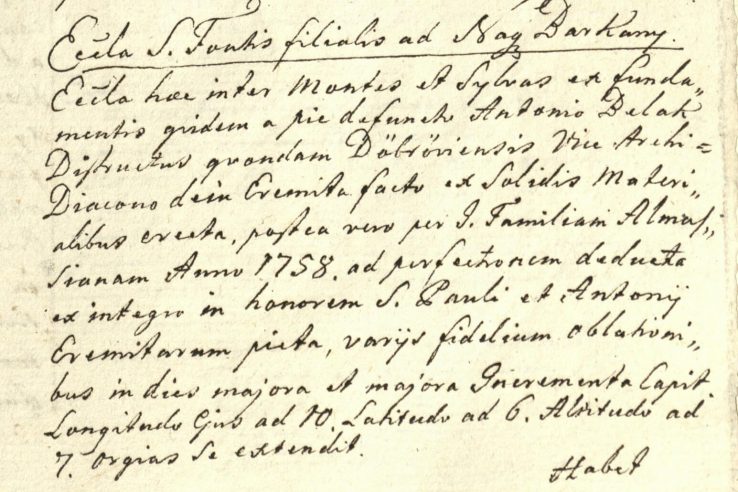 Eccla S. Fontis filialis ad Nag Barkany.
Eccla hæc inter Montes et Sylvas ex funda„
mentis quidem a pie defuncto Antonio Belak
Districtus quondam Döbröviensis Vice Archi=
Diacono dein Eremita facto ex Solidis Materi„
alibus erecta, postea vero per I. Familiam Almas„
sianam Anno 1758. ad perfectionem deducta
ex integro in honorem S. Pauli et Antonij
Eremitarum picta, varijs fidelium oblationi„
bus in dies majora et majora Incrementa Capit
Longitudo Ejus ad 10. Latitudo ad 6. Altitudo ad
7. orgias se extendit.
Habet